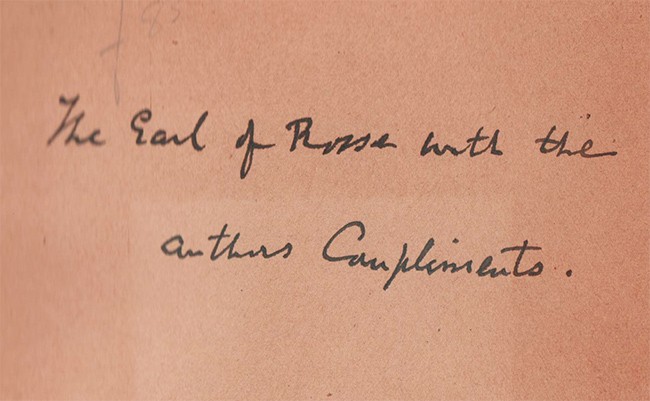 The Earl of Rosse with the
authors Compliments.